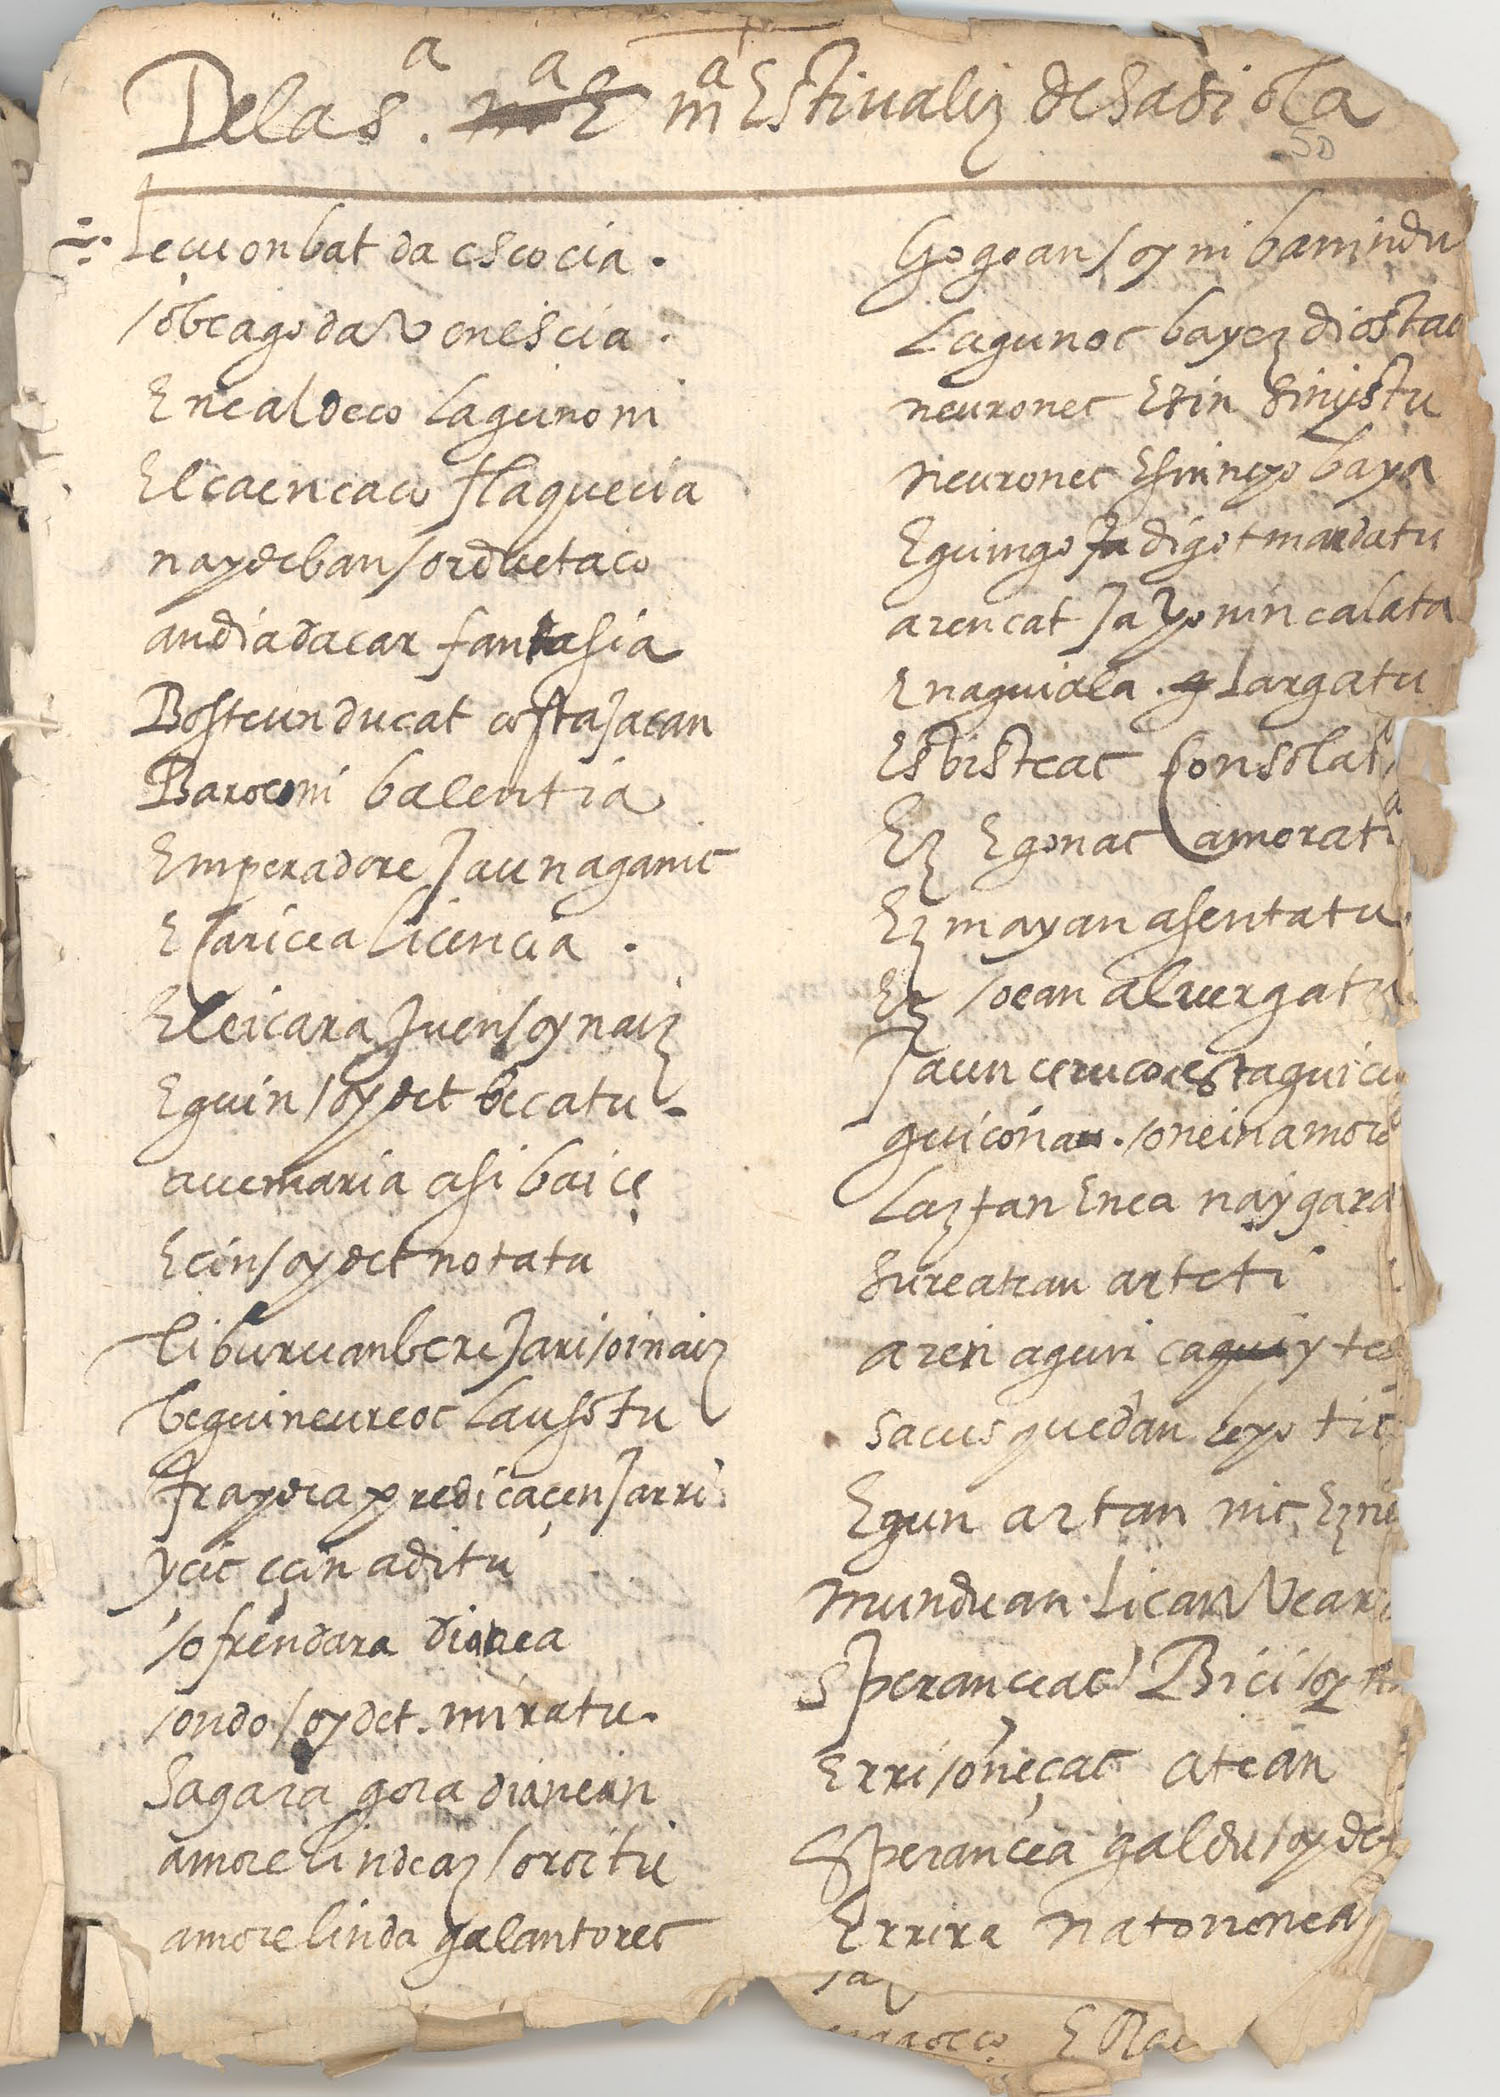 De la s.ª m.ª Estivaliz de sasiola
50
Lecu on bat da escocia .
obeago da venescia .
Enealdeco lagunoni
Elcaencaco flaquecia
naydeban sorduetaco
andia dacar fantasia
Bost eun ducat costa jacan
Baroeoni balentia
Emperadore Jaunaganic
Ecaricea licencia .
Eleicara Juen soynaiz
Eguin soydet becatu
avemaria asi baiçe
Ecin soydet notatu
liburuan bere Jari soinaiz
beguineureoc lausotu
fraydea predicaçen Jarri
ycic eçin aditu
ofrendara dianea
ondo soydet . miratu .
Sagara gora dianean
amore lindeaz soroitu
amore linda galantorec
Gogoan soy ni banindu
Lagunoc bayez diostae
neuronec Esin sinystu
neuronec Esin neyo baya
Eguingo digot mandatu
arencat Jayo nin calata
Enaguiala . largatu
Esbisteac Consolat
Ez Egonac Camorat
Ez mayan asentatu .
Ez oean alvergatu
Jaun ceruco
guicona . oneinamore
Laztan Enea naygara
sureatean arteti
aren aguri ca yte
sacus guedan leyo tic
Egun artan nic Ez
munduan . Licar vear
Speranceac Bici soy
Erri oneçac atean
Esperancea galdu soydet
Errira natorrenea